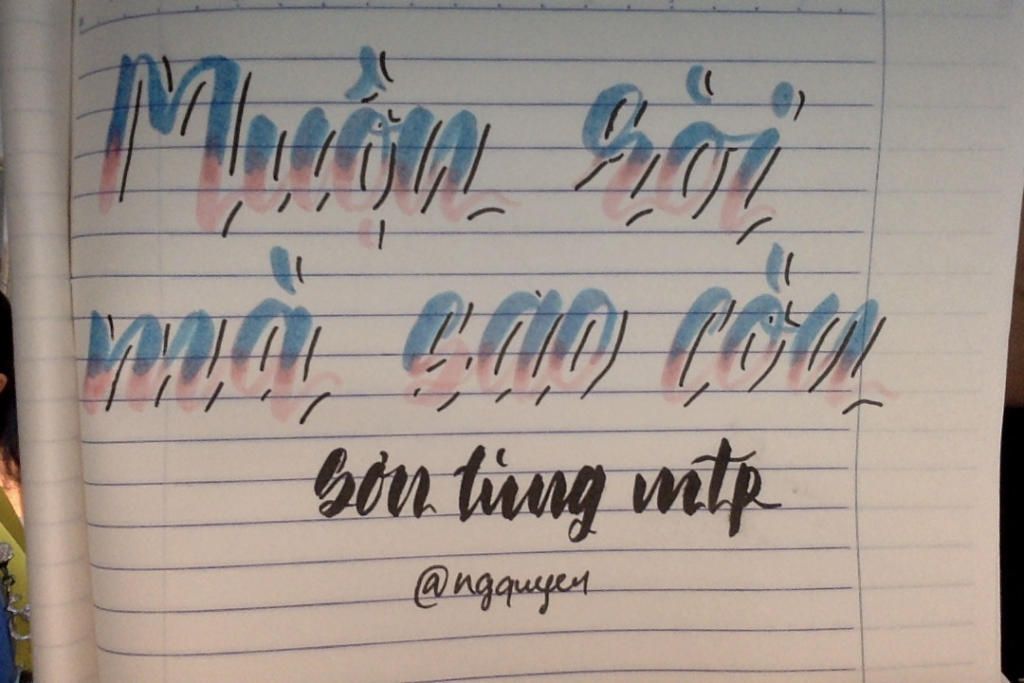 Muộn rồi
mà sao còn
sơn tùng mtp
@ngquyen